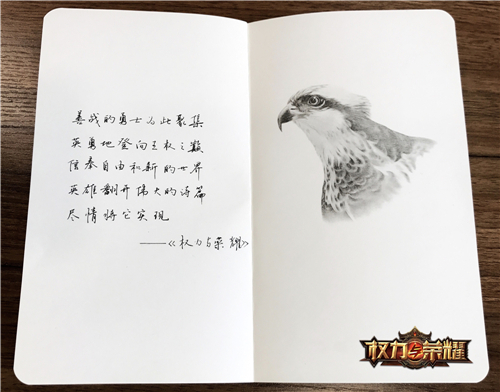 善战的勇士为此聚集
英勇地登向王权之巅
信奉自由和新的世界
英雄翻开伟大的诗篇
尽情将它实现
——《权力与荣耀》
权力与荣耀